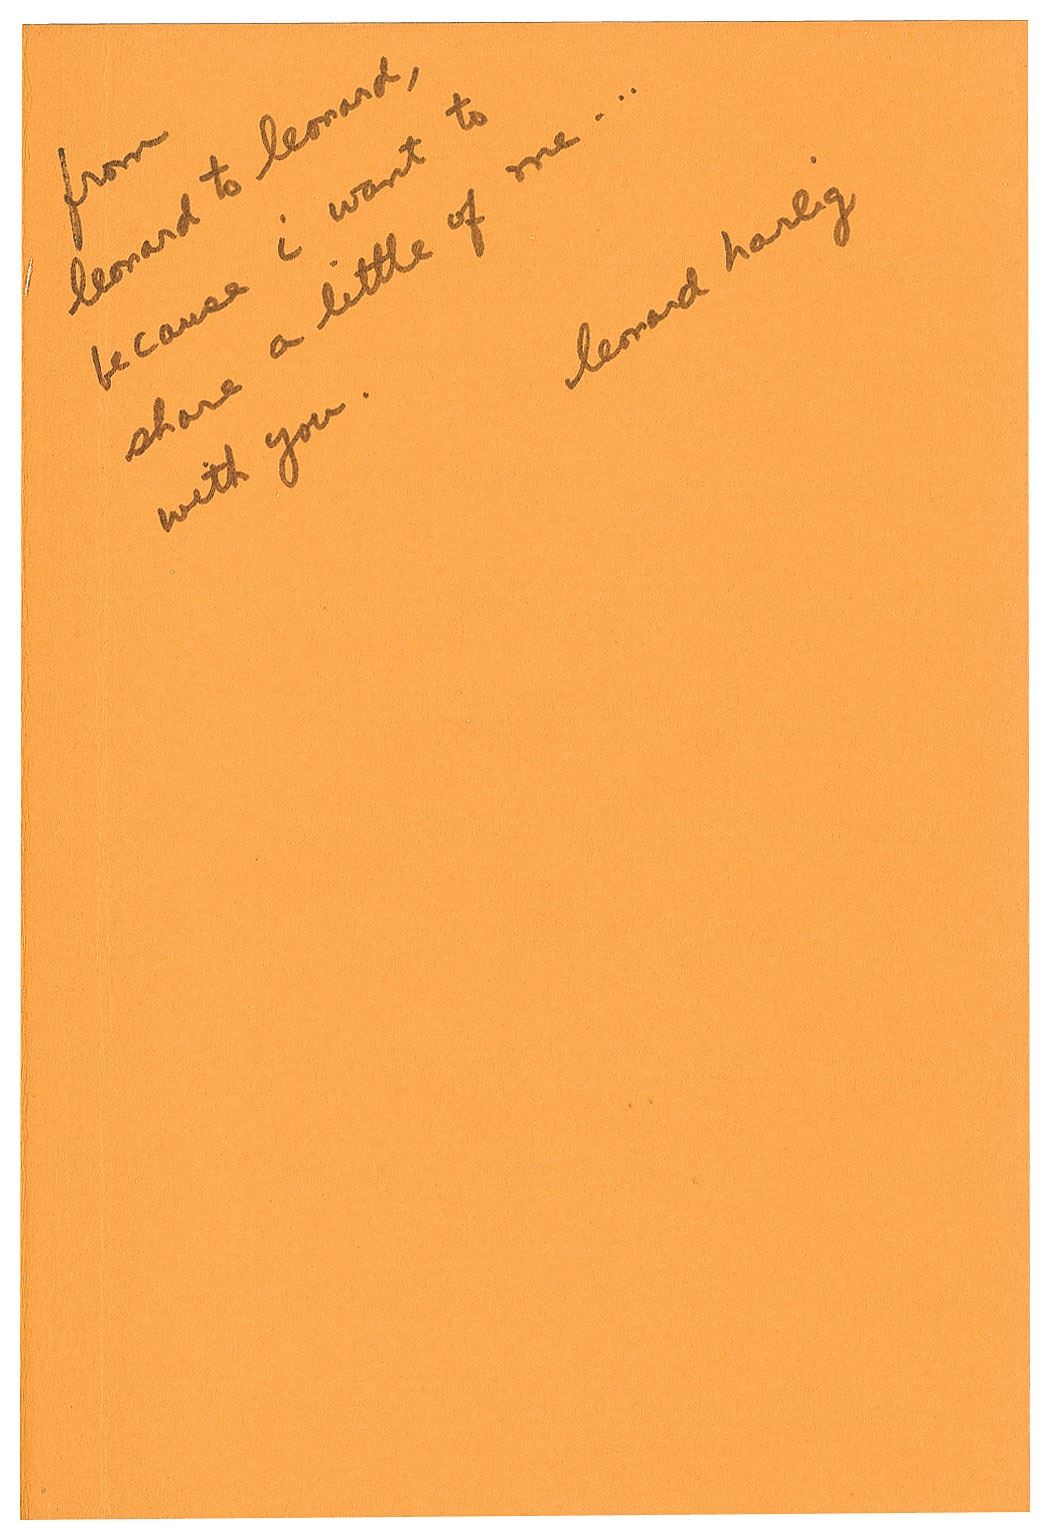 from
leonard to leonard,
because i want to
share a little of me...
with you.
leonard harlig